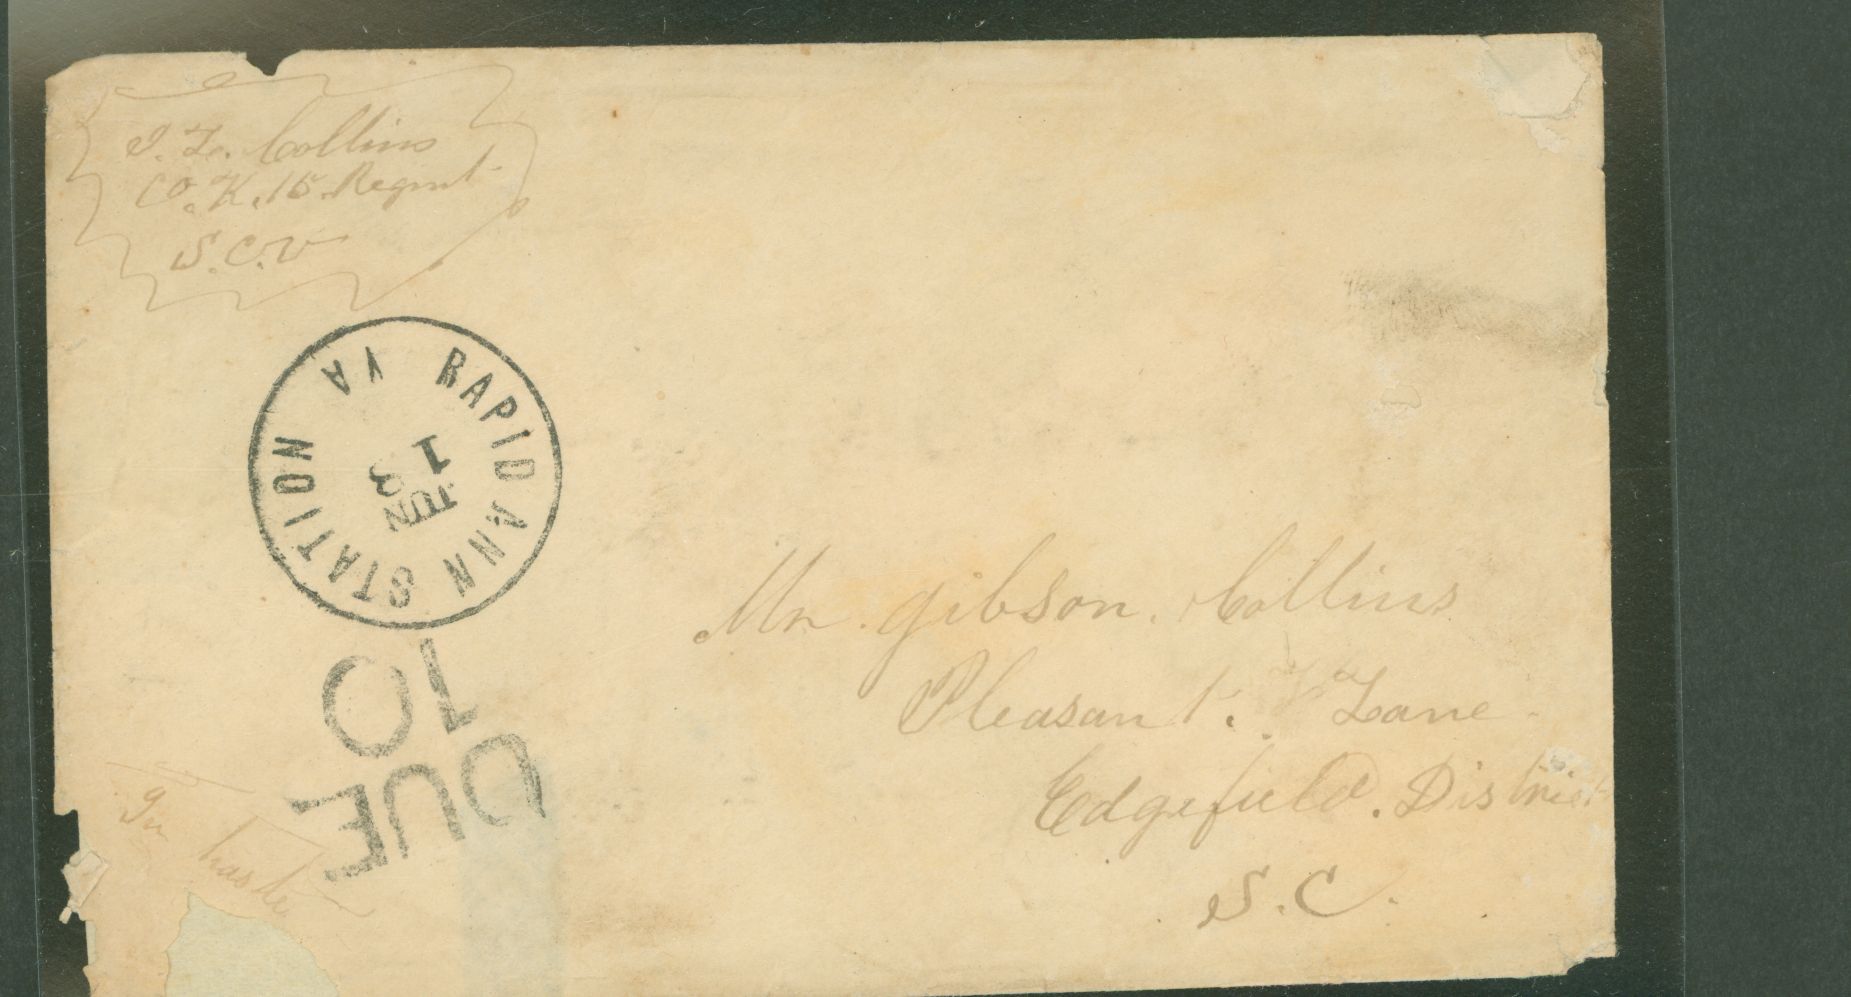 J. L. Collins
Co. K. 15. Regmt.
S.C.V
RAPID ANN STATION VA
JUN
3
1
DUE
10
Mr. gibson. Collins
Pleasant. Lane
Edgefield. District
S.C.
In haste